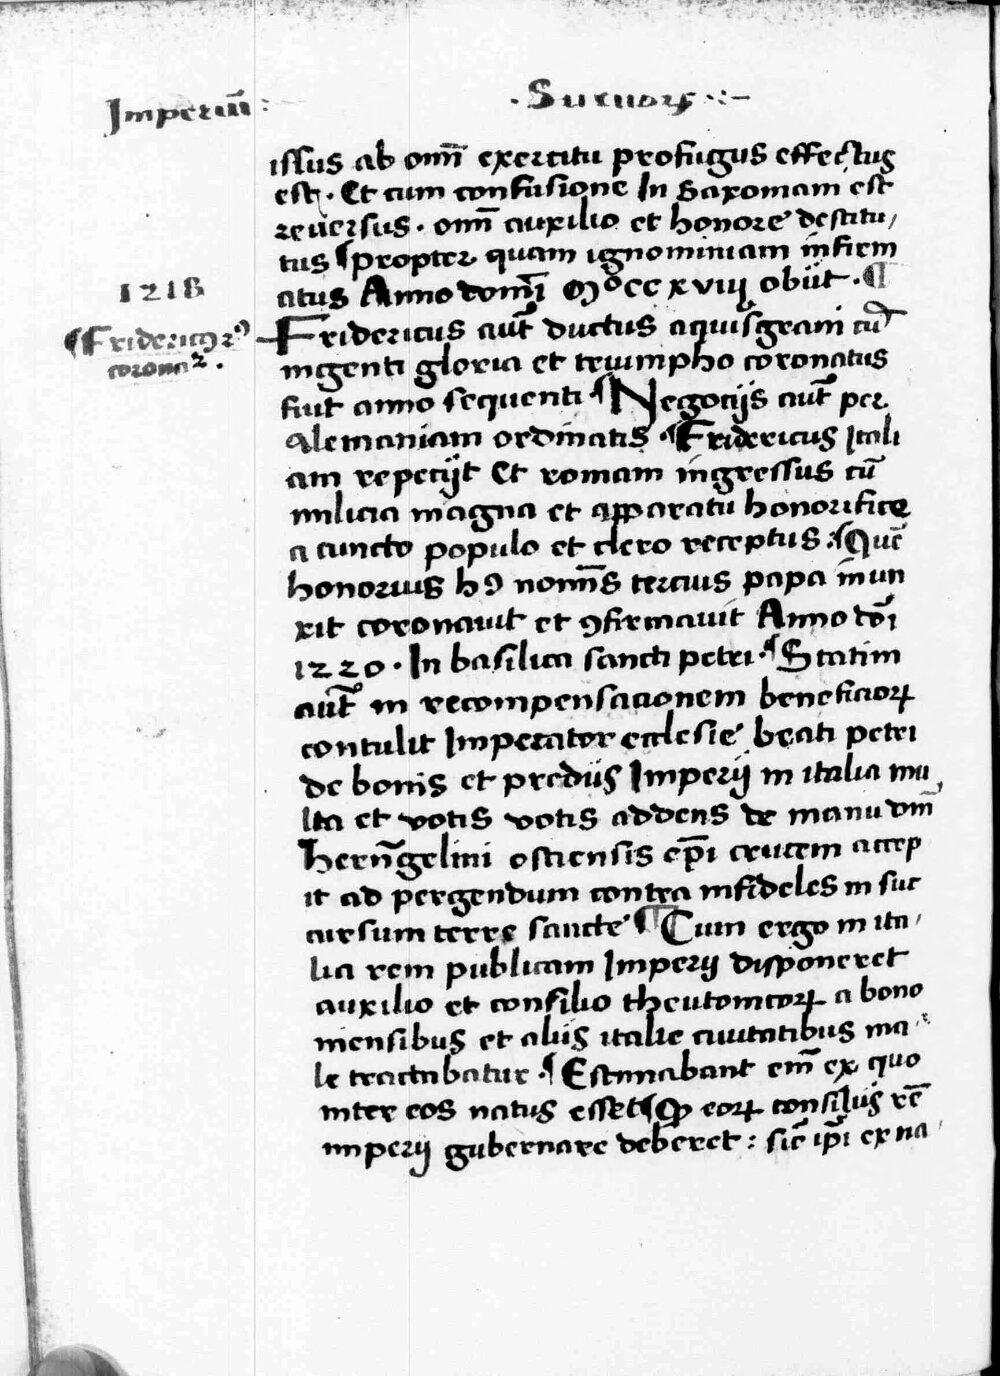 Imperiu̅ :
· Sueuorꝝ :·–
issus ab om̅i exercitu profugus effectus
est · Et cum confusione In Saxoniam est
reuersus · om̅i auxilio et honore destitu/
tus ¶ propter quam ignominiam infirm
atus Anno domi̅ Mᵒ cc xviij obiit · ¶
1218
¶ Fridericꝰ 2ꝰ
coronaꝛ .
Fridericus aut̅ ductus aquisgrani cu̅
ingenti gloria et triumpho coronatus
fuit anno sequenti · ¶ Negocijs aut̅ per
Alemaniam ordinatis · ¶ Fridericus Itali
am repecijt Et romam ingressus cu̅
milicia magna et apparatu honorifice
a cuncto populo et clero receptus : ¶ Que̅
honorius hꝰ nomi̅s tercius papa inun
xit coronauit et ꝯfirmauit Anno do̅i
1220 · In basilica sancti petri · ¶ Statim
aut̅ in recompensacionem beneficiorꝝ
contulit Imperator ecclesie beati petri
de bonis et predijs Imperij in italia mu
lta et votis votis addens de manu dn̅i
osciensis ep̅i crucem accep
it ad pergendum contra infideles in suc
cursum terre sancte ¶ Cum ergo in ita/
lia rem publicam Imperij disponeret
auxilio et consilio theutonicorꝝ a bono
niensibus et alijs italie ciuitatibus ma
le tractabatur · ¶ Estimabant em̅ ex quo
inter eos natus esset ¶ Ꝙ eorꝝ consilijs re̅
imperij gubernare deberet : sic̅ ip̅i ex na/